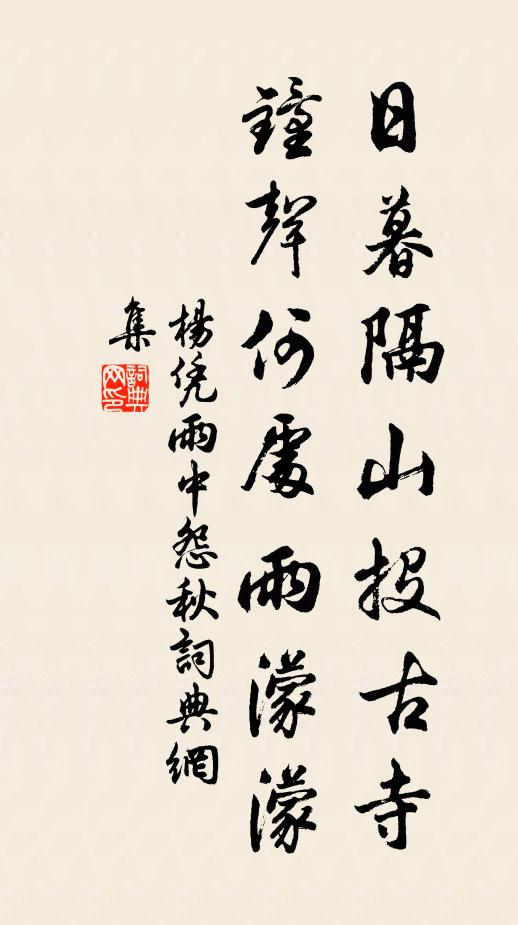 日暮隔山投古寺
鐘聲何處雨濛濛
楊凭雨中怨秋詞典網
集
詞典
网印